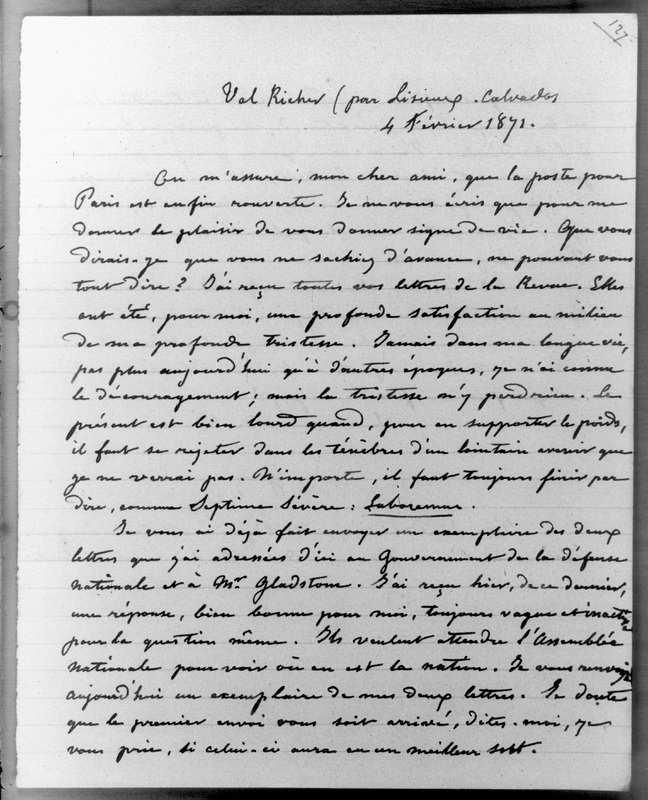 127
Val Richer (par Lisieux. Calvados
4 Février 1871.
On m'assure, mon cher ami, que la poste pour
Paris est enfin rouverte. Je ne vous écris que pour me
donner le plaisir de vous donner signe de vie. Que vous
dirais-je que vous ne sachiez d'avance, ne pouvant vous
tout dire ? J'ai reçu toutes vos lettres de la Revue. Elles
ont été, pour moi, une profonde satisfaction au milieu
de ma profonde tristesse. Jamais dans ma longue vie,
pas plus aujourd'hui qu'à d'autres époques, je n'ai connu
le découragement ; mais la tristesse n'y perd rien. Le
présent est bien lourd quand, pour en supporter le poids,
il faut se rejeter dans les ténèbres d'un lointain avenir que
je ne verrai pas. N'importe, il faut toujours finir par
dire, comme Septime Sévère : Laboremus.
Je vous ai déjà fait envoyer un exemplaire des deux
lettres que j'ai adressées d'ici au Gouvernement de la défense
nationale et à Mr. Gladstone. J'ai reçu hier, de ce dernier,
une réponse, bien bonne pour moi, toujours vague et inactive
pour la question même. Ils veulent attendre l'Assemblée
nationale pour voir où en est la nation. Je vous renvoie
aujourd'hui un exemplaire de mes deux lettres. Je doute
que le premier envoi vous soit arrivé, dites-moi, je
vous prie, si celui-ci aura eu un meilleur sort.